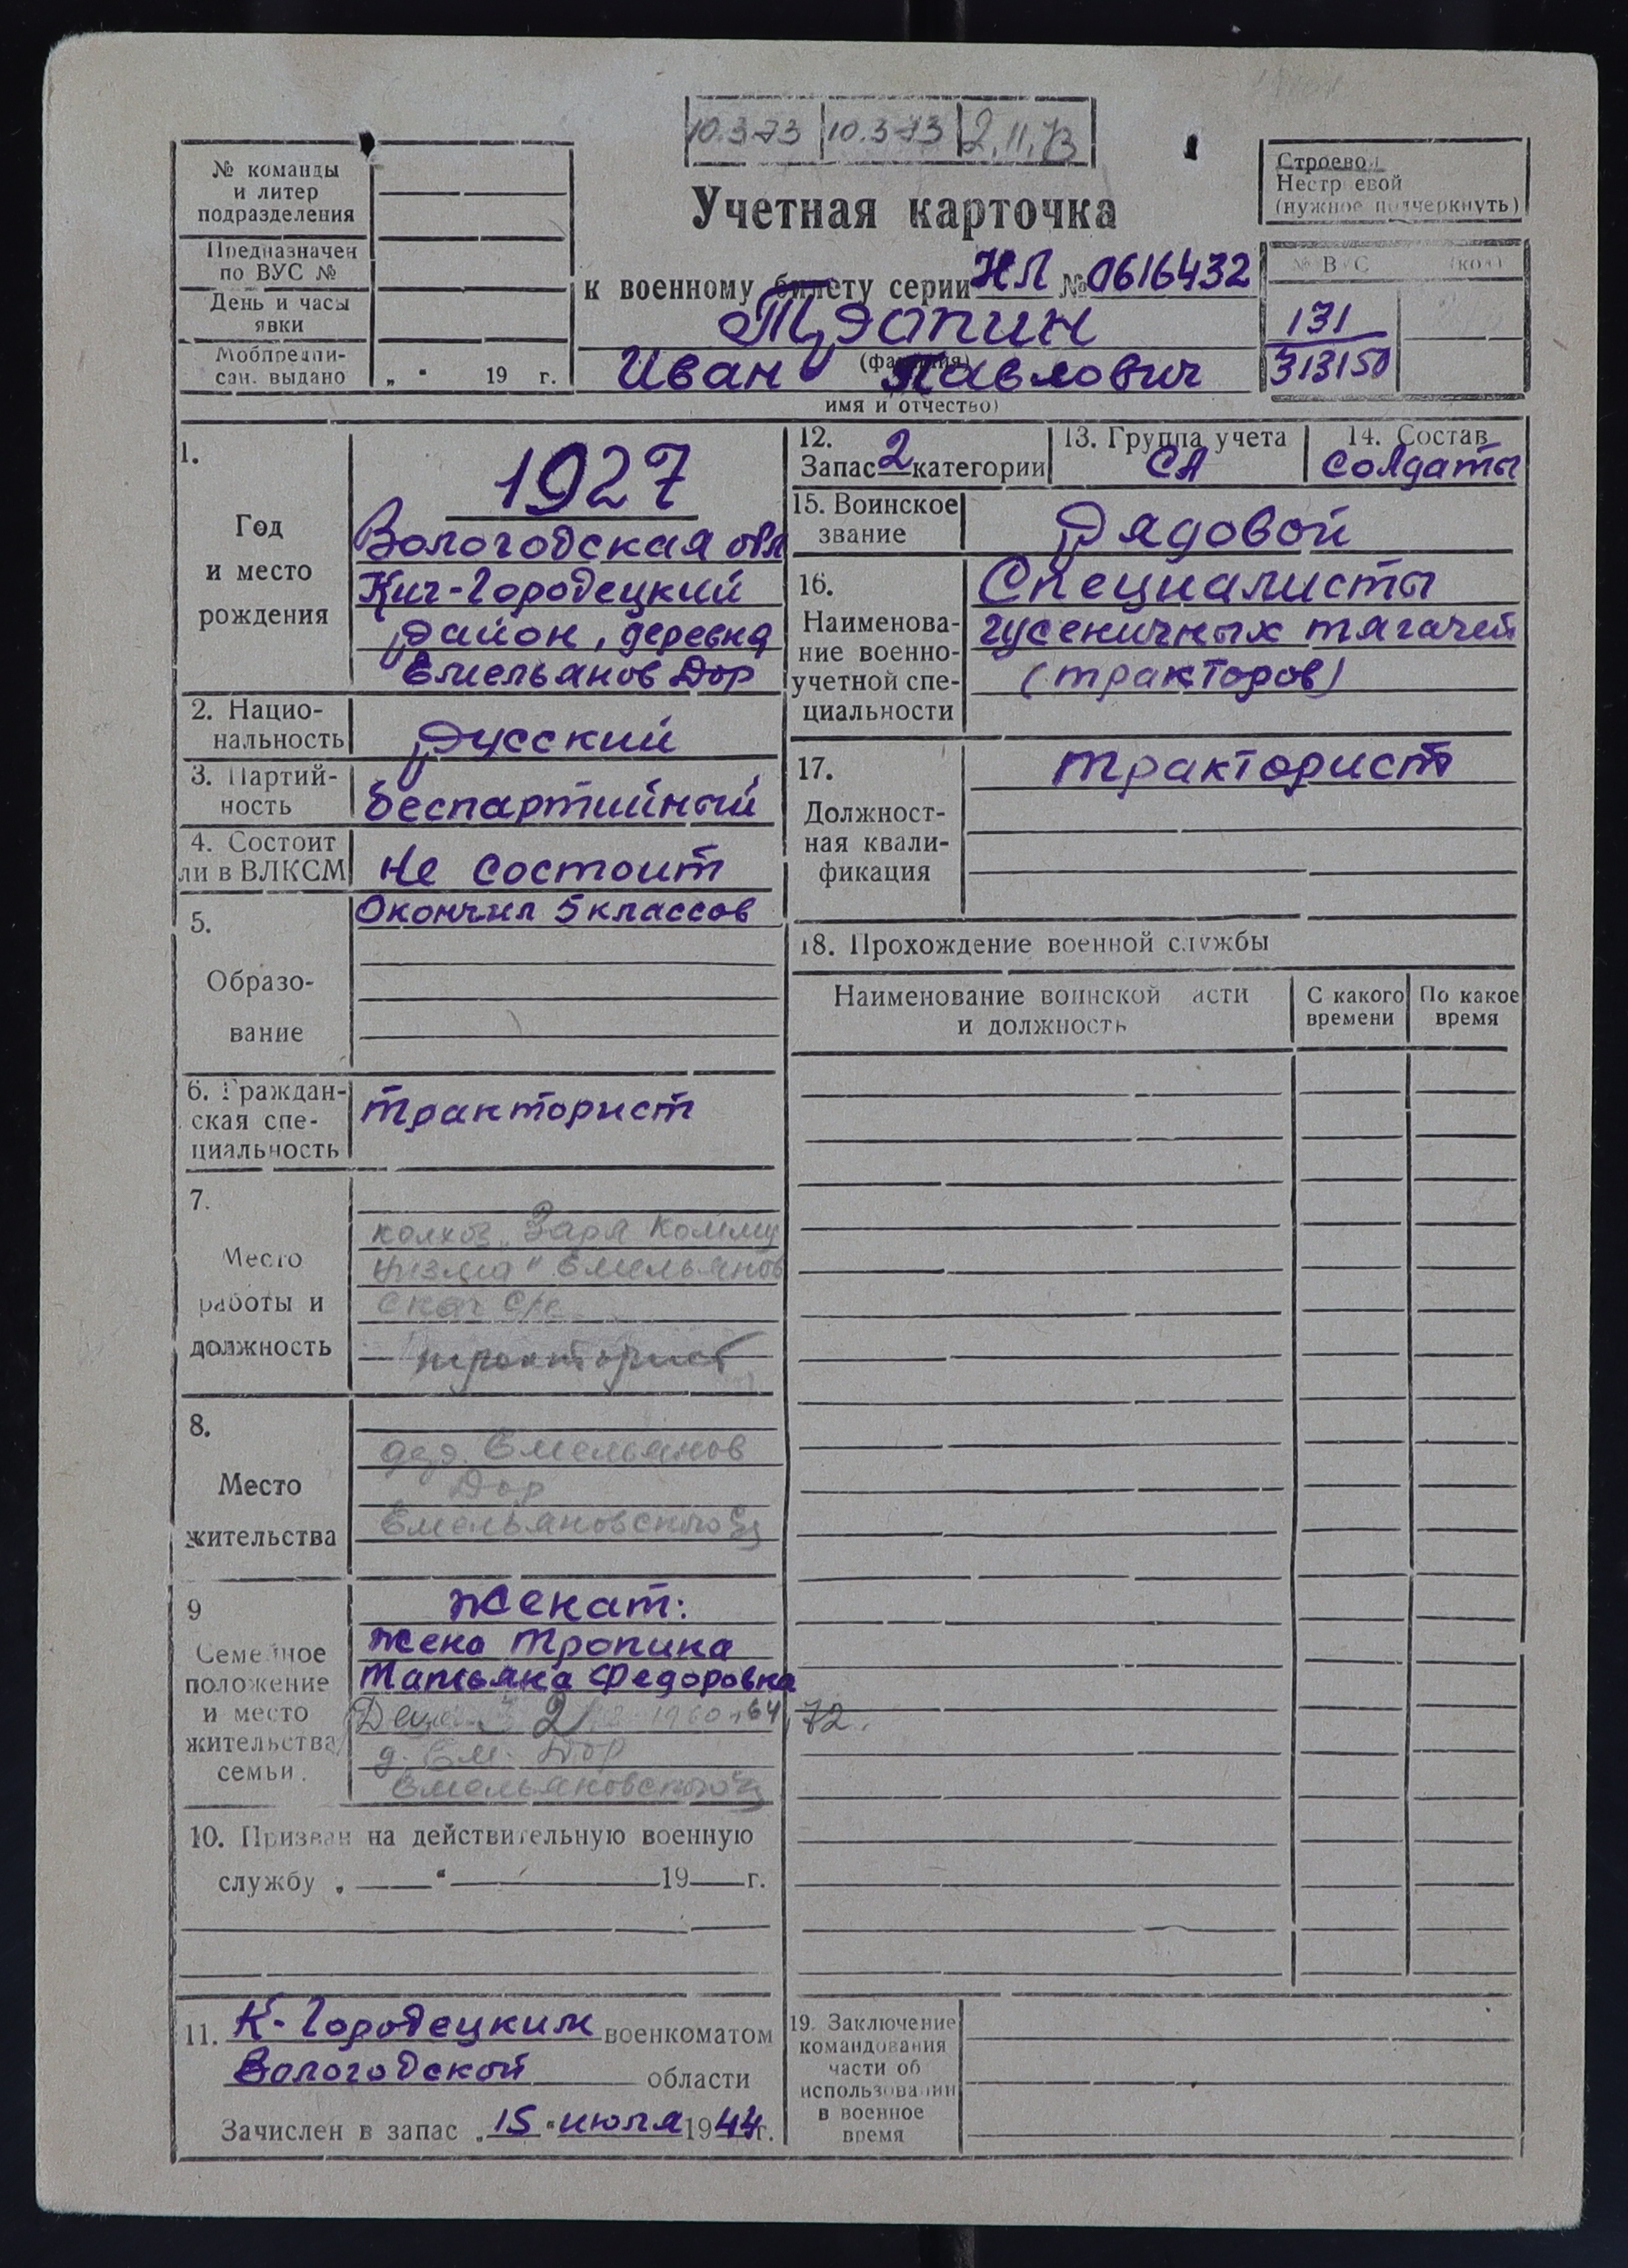 10.3-73 10.3-73 2.11.73
№ команды
и литер
подразделения
Предназначен
по ВУС №
День и часы
явки
Мобпредпи-
сан. выдано „ " 19 г.
Учетная карточка
к военному билету серии НЛ № 0616432
Тропин
(фамилия)
Иван Павлович
имя и отчество)
Строевой
Нестроевой
(нужное подчеркнуть)
№ ВУС (код)
131
313150
1.
Год
и место
рождения
1927
Вологодская обл
Кич-Городецкий
район, деревня
Емельянов Дор
2. Нацио-
нальность
Русский
3. Партий-
ность
беспартийный
4. Состоит
ли в ВЛКСМ
Не состоит
5.
Образо-
вание
Окончил 5 классов
6. Граждан-
ская спе-
циальность
тракторист
7.
Место
работы и
должность
колхоз „Заря Комму
низма" Емельянов
ский с/с
тракторист
8.
Место
жительства
дер. Емельянов
Дор
Емельяновского
9
Семейное
положение
и место
жительства
семьи.
Женат:
жена Тропина
Татьяна Федоровна
Дети 2 1960, 64, 72.
д. Ем. Дор
Емельяновского
10. Призван на действительную военную
службу „ " 19 г.
11. К-Городецким военкоматом
Вологодской области
Зачислен в запас „15" июля 1944 г.
12.
Запас 2 категории
13. Группа учета
СА
14. Состав
солдаты
15. Воинское
звание
Рядовой
16.
Наименова-
ние военно-
учетной спе-
циальности
Специалисты
гусеничных тягачей
(тракторов)
17.
Должност-
ная квали-
фикация
тракторист
18. Прохождение военной службы
Наименование воинской части
и должность
С какого
времени
По какое
время
19. Заключение
командования
части об
использовании
в военное
время